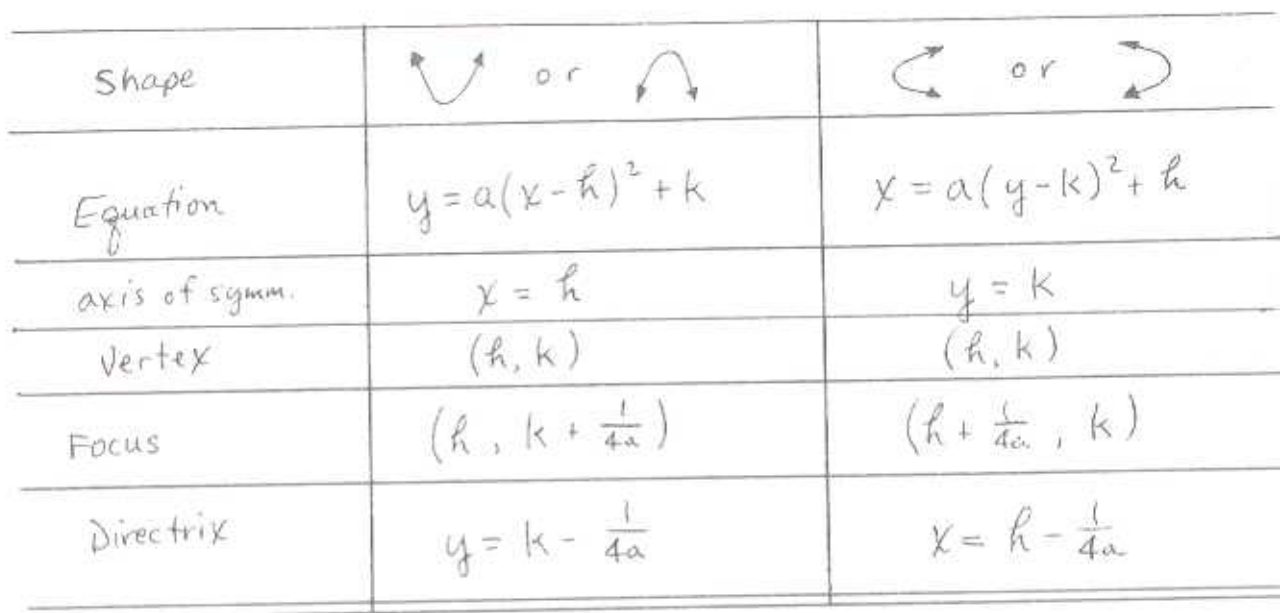 Shape or or
Equation y = a(x-h)² + k x = a(y-k)² + h
axis of symm. x = h y = k
Vertex (h, k) (h, k)
Focus (h, k + 1/4a) (h + 1/4a, k)
Directrix y = k - 1/4a x = h - 1/4a